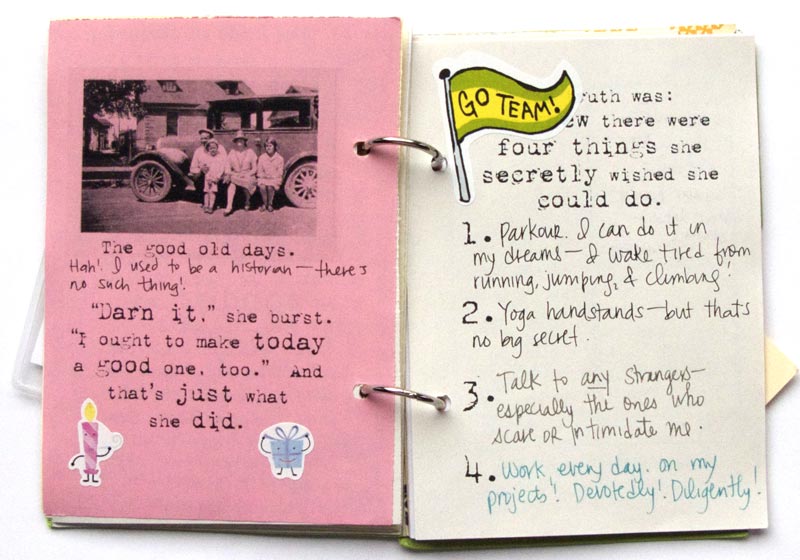 The good old days.
Hah! I used to be a historian—there's
no such thing!
"Darn it," she burst.
"I ought to make today
a good one, too." And
that's just what
she did.
GO TEAM!
ruth was:
ew there were
four things she
secretly wished she
could do.
1. Parkour. I can do it in
my dreams—I wake tired from
running, jumping, & climbing!
2. Yoga handstands—but that's
no big secret.
3. Talk to any strangers—
especially the ones who
scare or intimidate me.
4. Work every day. on my
projects! Devotedly! Diligently!